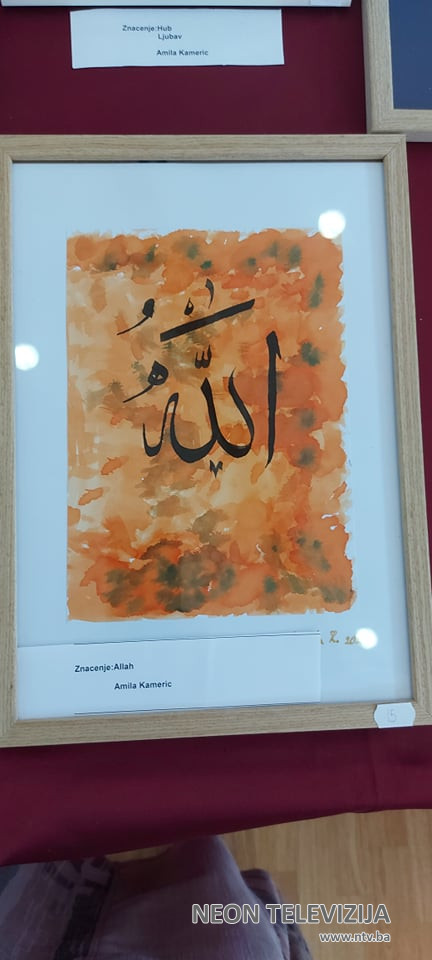 Znacenje:Hub
Ljubav
Amila Kameric
اللهُ
Znacenje:Allah
Amila Kameric
15
NEON TELEVIZIJA
www.ntv.ba